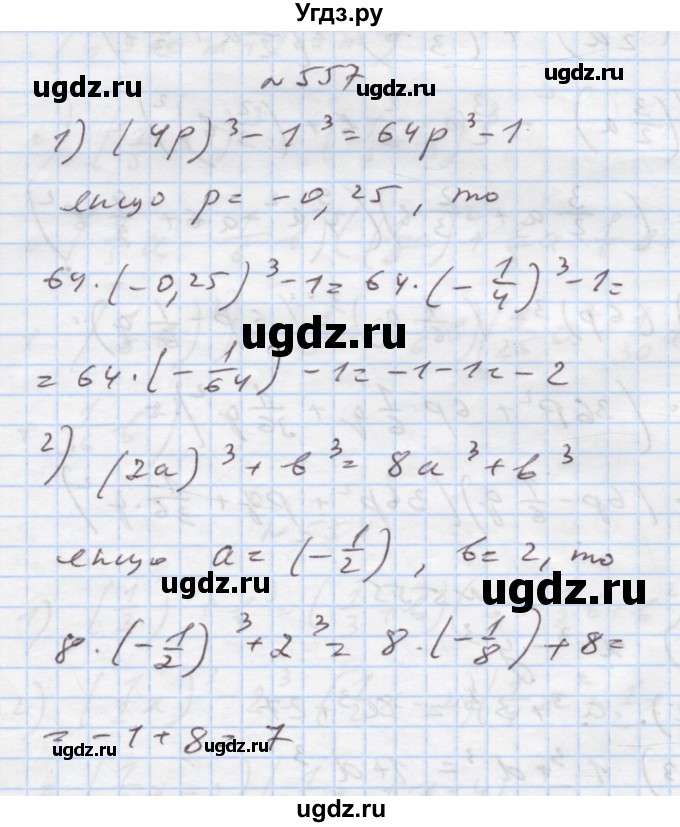 Угдз.ру
ugdz.ru ugdz.ru ugdz.ru
№ 557
1) (4p)³ - 1³ = 64p³ - 1
якщо p = -0,25, то
64·(-0,25)³ - 1 = 64·(-1/4)³ - 1 =
ugdz.ru
= 64·(-1/64) - 1 = -1 - 1 = -2
2) (2a)³ + b³ = 8a³ + b³
якщо a = (-1/2), b = 2, то
ugdz.ru ugdz.ru
8·(-1/2)³ + 2³ = 8·(-1/8) + 8 =
= -1 + 8 = 7
ugdz.ru ugdz.ru
ugdz.ru